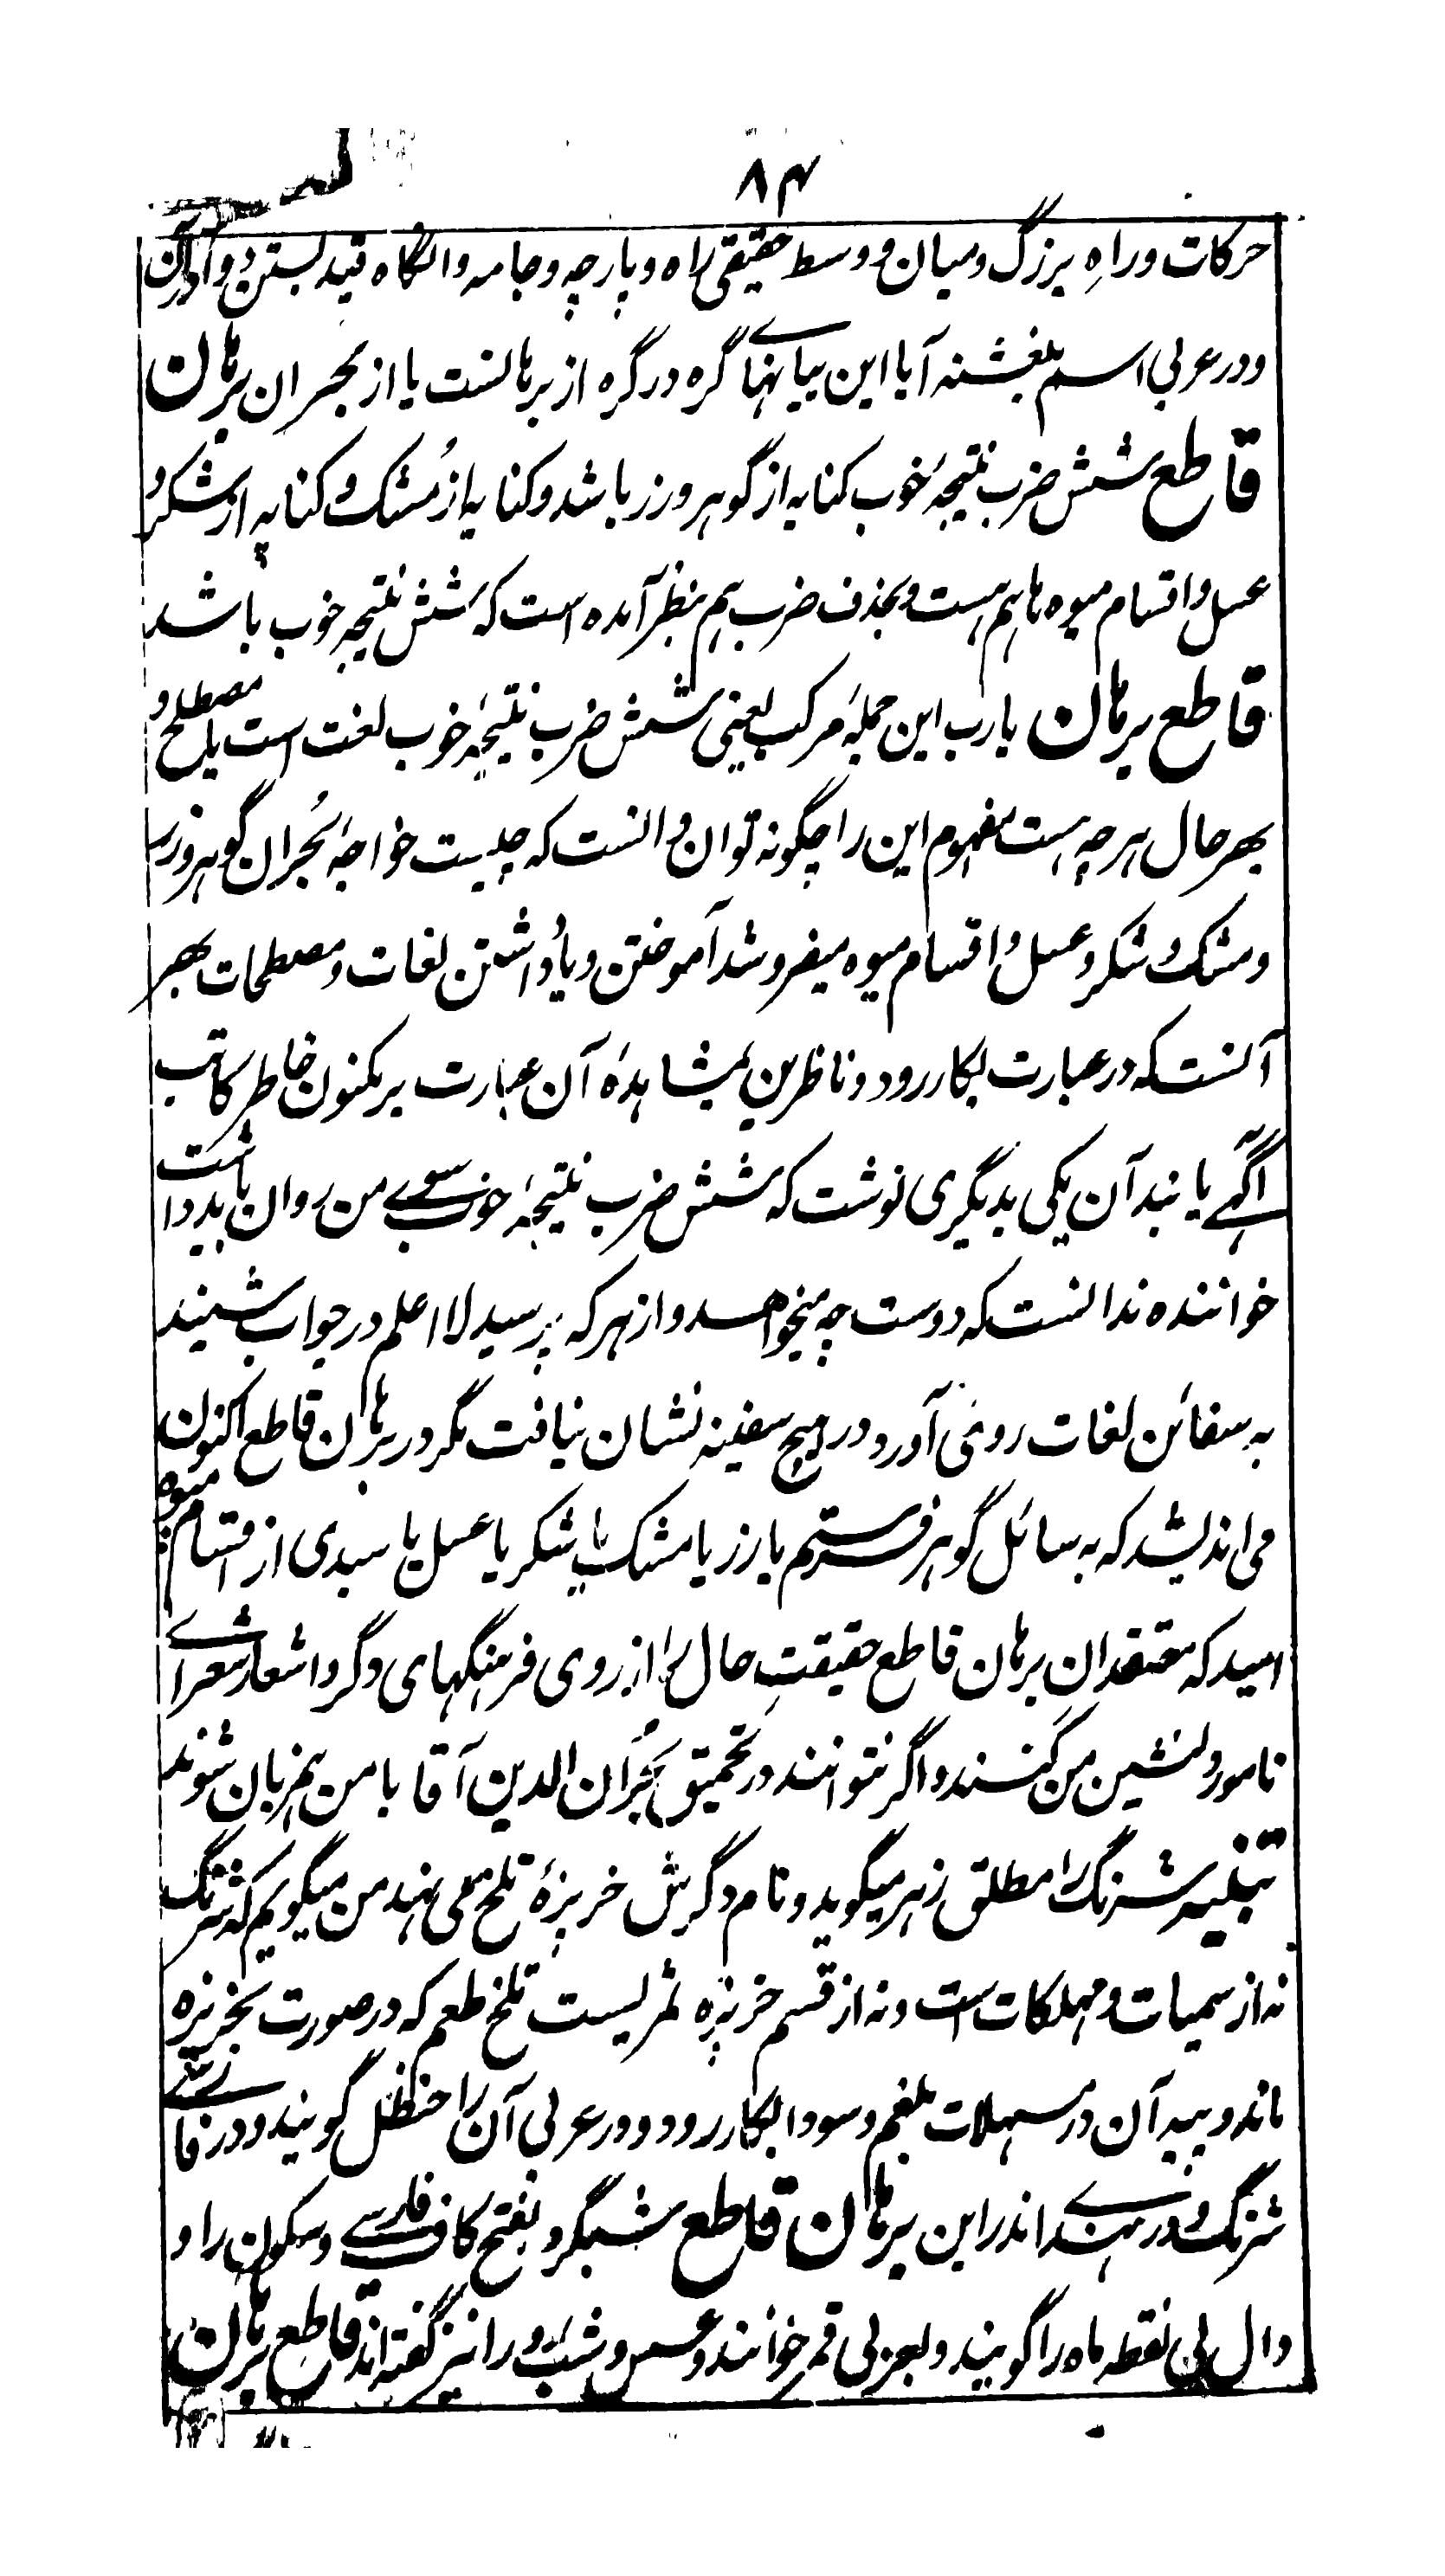 ۸۴
حرکات و راهِ بزرگ و میان و وسط حقیقی راه و پارچه و جامه و انگاه قید بستن دو
و در عربی اسم بنفشه آیا این بیانهای گره در گره از برهانست یا از بحران برهان
قاطع شش ضرب نتیجهٔ خوب کنایه از گوهر و زر باشد و کنایه از مُشک و کنایه از شکر و
عسل و اقسام میوه ها هم هست و بحذف ضرب هم بنظر آمده است که شش نتیجه خوب باشد
قاطع برهان یارب این جملهٔ مرکب یعنی شش ضرب نتیجهٔ خوب لغت است یا مصطلح و
بهر حال هر چه هست مفهوم این را چگونه توان دانست که چیست خواجهٔ بُحران گوهر و زر
و مشک و شکر و عسل و اقسام میوه میفروشد آموختن و یاد داشتن لغات و مصطلحات بهر
آنست که در عبارت بکار رود و ناظرین بمشاهدهٔ آن عبارت بر مکنون خاطر کاتب
آگهی یابند آن یکی بدیگری نوشت که شش ضرب نتیجهٔ خوب سوی من روان باید داشت
خواننده ندانست که دوست چه میخواهد و از هر که پرسید لا اعلم در جواب شنید
به سفائن لغات روی آورد و در هیچ سفینه نشان نیافت مگر در برهان قاطع اکنون
می اندیشد که به سائل گوهر فرستم یا زر یا مشک یا شکر یا عسل یا سبدی از اقسام میوه
امید که معتقدان برهان قاطع حقیقتِ حال را از روی فرهنگهای دگر و اشعار شعرای
نامور دلنشین من کنند و اگر نتوانند در تحمیق بُحران الدین آقا با من همزبان شوند
تنبیه شرنگ را مطلق زهر میگوید و نام دگرش خربزهٔ تلخ می نهد من میگویم که شرنگ
نه از سمیات و مهلکات است و نه از قسم خربزه ثمریست تلخ طعم که در صورت بخربزه
ماند و پیه آن در مسهلات بلغم و سودا بکار رود و در عربی آن را حنظل گویند و در فارسی
شرنگ و در هندی اندراین برهان قاطع شبگرد بفتح کاف فارسی و سکون را و
دال بی نقطه ماه را گویند و بعربی قمر خوانند و عسس و شب رو را نیز گفته اند قاطع برهان